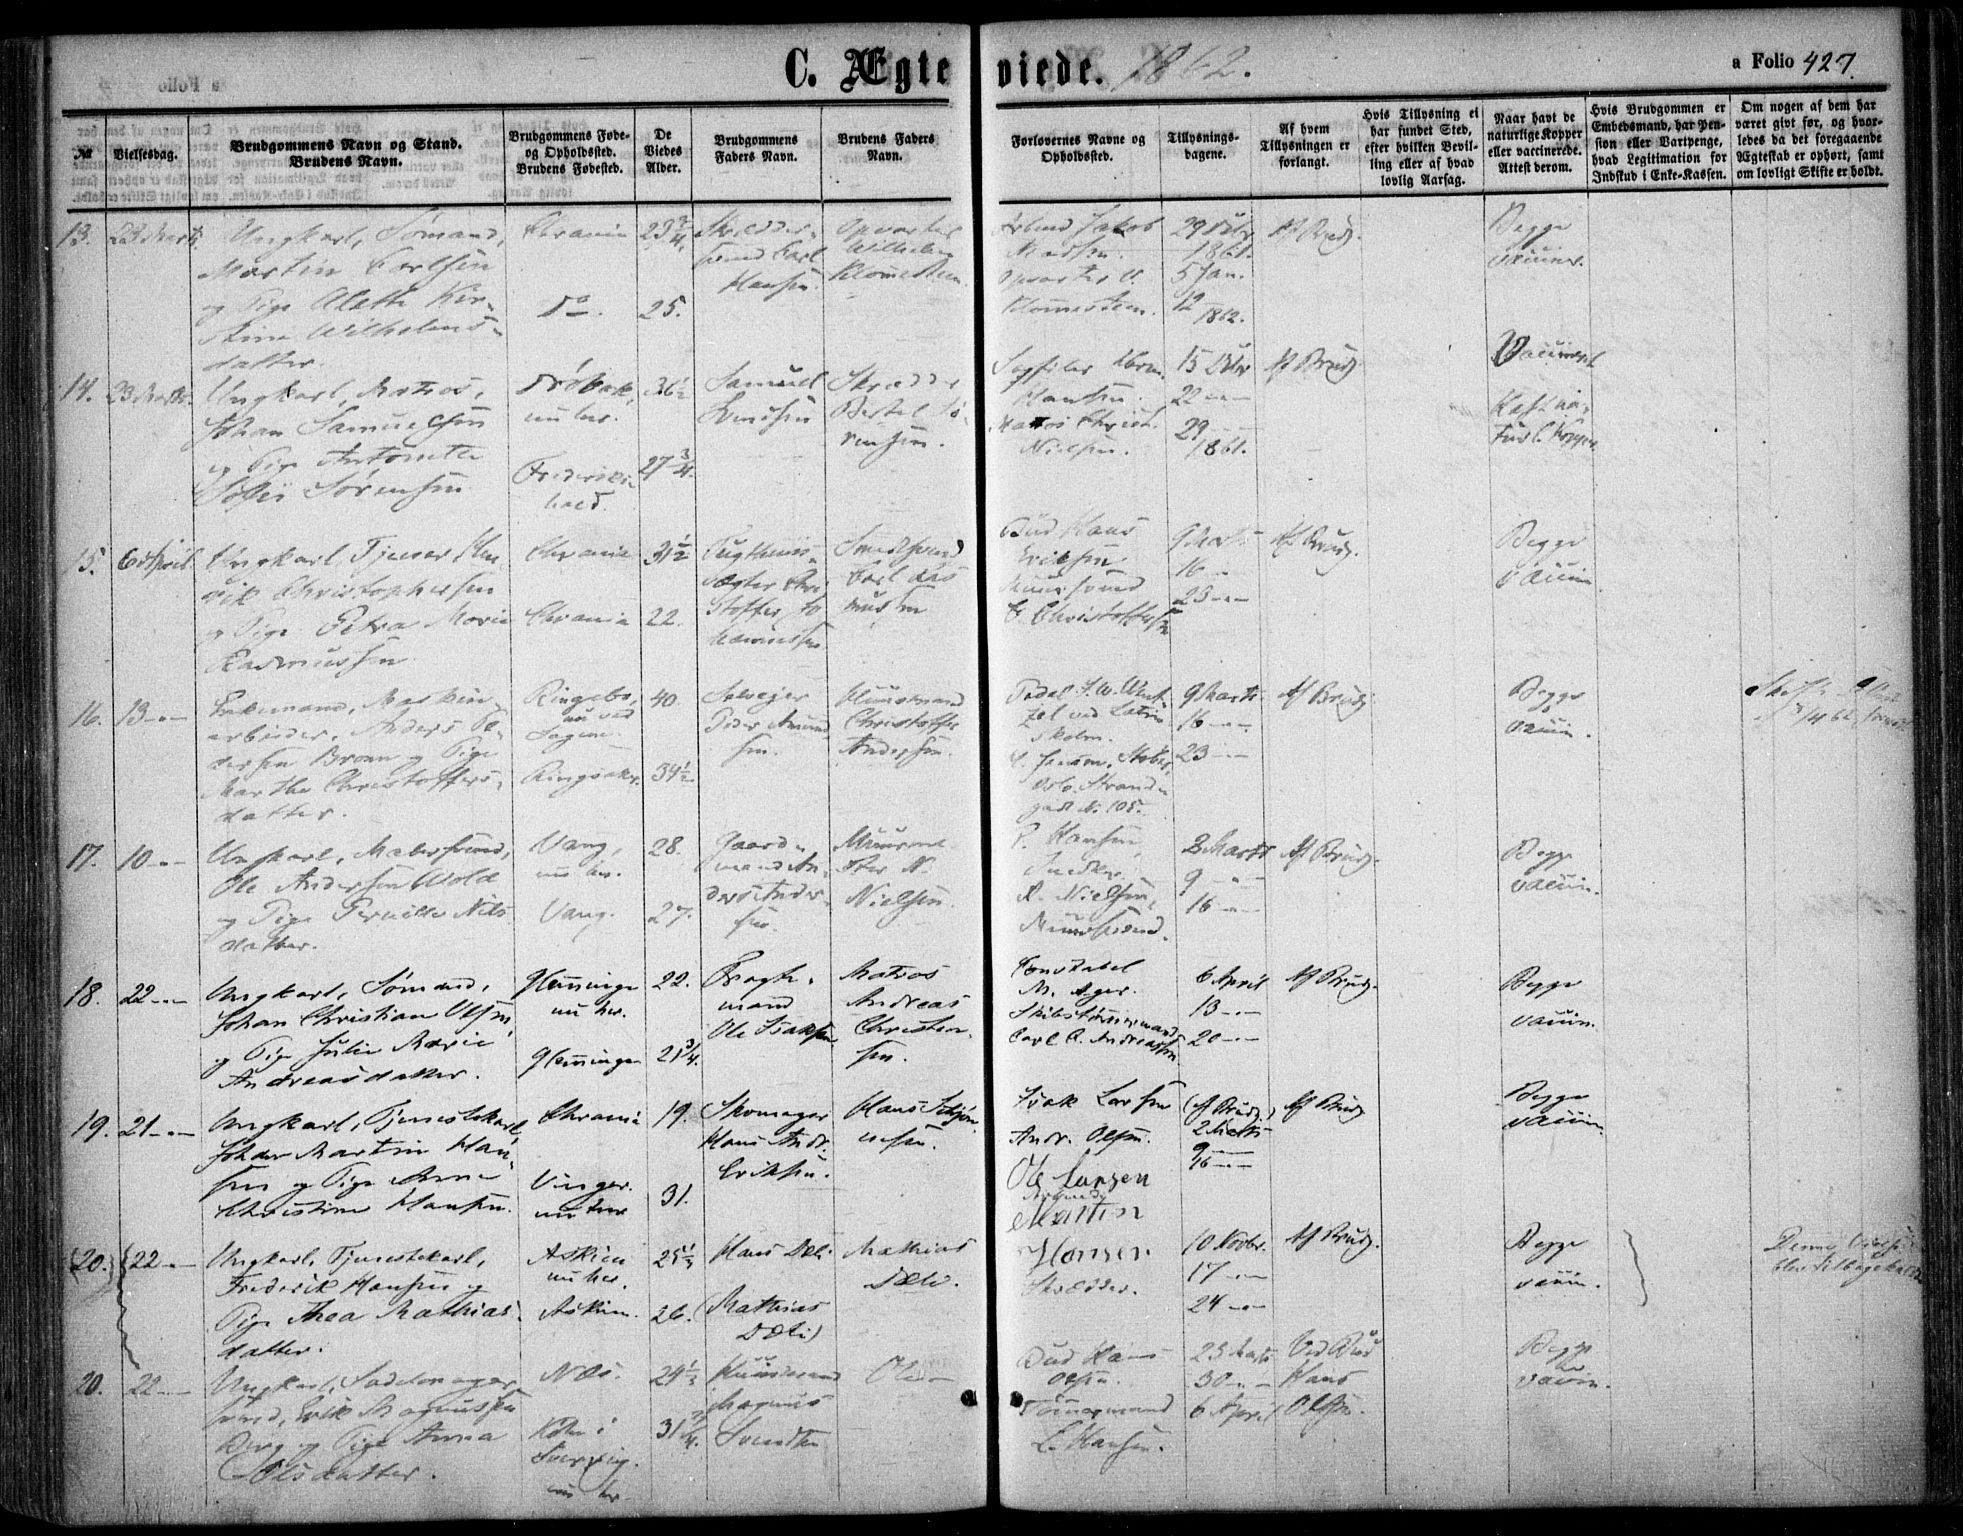 C. Ægteviede. 1862.
a Folio 427.
№
Vielsesdag.
Brudgommens Navn og Stand.
Brudens Navn.
Brudgommens Føde-
og Opholdssted.
Brudens Fødested.
De
Viedes
Alder.
Brudgommens
Faders Navn.
Brudens Faders
Navn.
Forlovernes Navne og
Opholdssted.
Tillysnings-
dagene.
Af hvem
Tillysningen er
forlangt.
Hvis Tillysning ei
har fundet Sted,
efter hvilken Bevil-
ling eller af hvad
lovlig Aarsag.
Naar havt de
naturlige Kopper
eller vaccinerede.
Attest derom.
Hvis Brudgommen er
Embedsmand, har Pen-
sion eller Vartpenge,
hvad Legitimation for
Indskud i Enke-Kassen.
Om nogen af dem har
været givt før, og hvor-
ledes da det foregaaende
Ægteskab er ophørt, samt
om lovligt Skifte er holdt.
13.
23 Marts
Ungkarl, Sømand,
Martin Carlsen
og Pige Alette Kir-
stine Wilhelms-
datter.
Chrania
Do.
23 3/4.
25.
Skrædder-
svend Carl
Hansen
Opvarter
Wilhelm
Klomesteen.
Jakob
Madsen.
Opvarter V.
Klomesteen.
29 Debr
1861.
5 Jan.
12
1862.
Af Brudg.
Begge
vaccin.
14.
23 Marts.
Ungkarl, Matros,
Johan Samuelsen
og Pige Antonette
Sofie Sørensen
Drøbak,
nu her.
Frederiks-
hald.
36 1/2
27 3/4.
Samuel
Svendsen
Skrædder
Bertel Sø-
rensen.
Hansen.
Matros Christ.
Nielsen.
15 Debr
22
29
1861.
Af Brudg.
Vaccineret
Kopper
15.
6 April.
Ungkarl, Tjener Hen-
rik Christophersen
og Pige Petra Marie
Rasmussen
Chrania
Chrania
31 1/2
22.
Tugthuus-
vægter Chri-
stoffer Jo-
hannessen
Smedsvend
Carl Ras-
mussen
Bud Hans
Eriksen.
Muursvend
C. Christoffersen
9 Marts
16
23
Af Brudg.
Begge
vaccin
16.
13
Enkemand, Maskin-
arbeider, Anders Pe-
dersen Broen og Pige
Marthe Christoffers-
datter.
Ringebo,
nu ved
Sagene.
Ringsaker.
40
34 1/2
Selveier
Peder Amund-
sen.
Huusmand
Christoffer
Andersen.
Pedel F. W. Went-
zel ved Latin-
skolen.
Jensen, Støber,
Oslo Strand-
gade N. 105.
9 Marts
16
23
Af Brudg.
Begge
vaccin.
17.
10
Ungkarl, Malersvend,
Ole Andersen Wold
og Pige Pernille Nils-
datter.
Vang,
nu her.
Vang.
28.
27.
Gaard-
mand An-
ders Ander-
sen.
Muurme-
ster N.
Nielsen.
P. Hansen,
Snedker
R. Nielsen,
Muursvend.
2 Marts
9
16
Af Brudg.
Begge
vaccin.
18.
22
Ungkarl, Sømand,
Johan Christian Olsen
og Pige Julie Marie
Andreasdatter.
Glemminge
nu her.
Glemmingen
22.
21 3/4.
Fragt-
mand
Ole Isaksen
Matros
Andreas
Christen-
sen.
Constabel
M. Ager.
Skibstømmermand
Carl A. Andreassen
6 April
13
20
Af Brudg.
Begge
vaccin.
19.
21
Ungkarl, Tjenestekarl
Johan Martin Han-
sen og Pige Anne
Christine Hansen.
Chrania
Vinger.
nu her
19.
31.
Skomager
Hans Andr.
Eriksen.
Hans
Isak Larsen
Andr. Olsen.
Ole Larsen
(Af Brudg.)
2 Marts
9
16
Af Brudg
Begge
vaccin.
(20.)
22
Ungkarl, Tjenestekarl,
Frederik Hansen og
Pige Thea Mathias-
datter.
Askim
nu her.
Askim.
25 1/2
26.
Hans Deli
(Mathias
Dæli)
Mathias
Dæli.
Martin
Hansen
Skrædder.
10 Novbr.
17
24
Af Brudg.
Begge
vaccin.
Denne
blev tilbagekaldt
20.
22
Ungkarl, Sadelmager-
svend, Erik Magnussen
Berg og Pige Anna
Olsdatter.
Næs.
i
Sverrig.
nu her.
24 1/2
31 3/4.
Huusmand
Magnus
Svendsen
Ole
Bud Hans
Olsen.
Tømmermand
L. Hansen.
23 Marts
30
6 April
Ved Bud
Hans
Olsen.
Begge
vaccin.